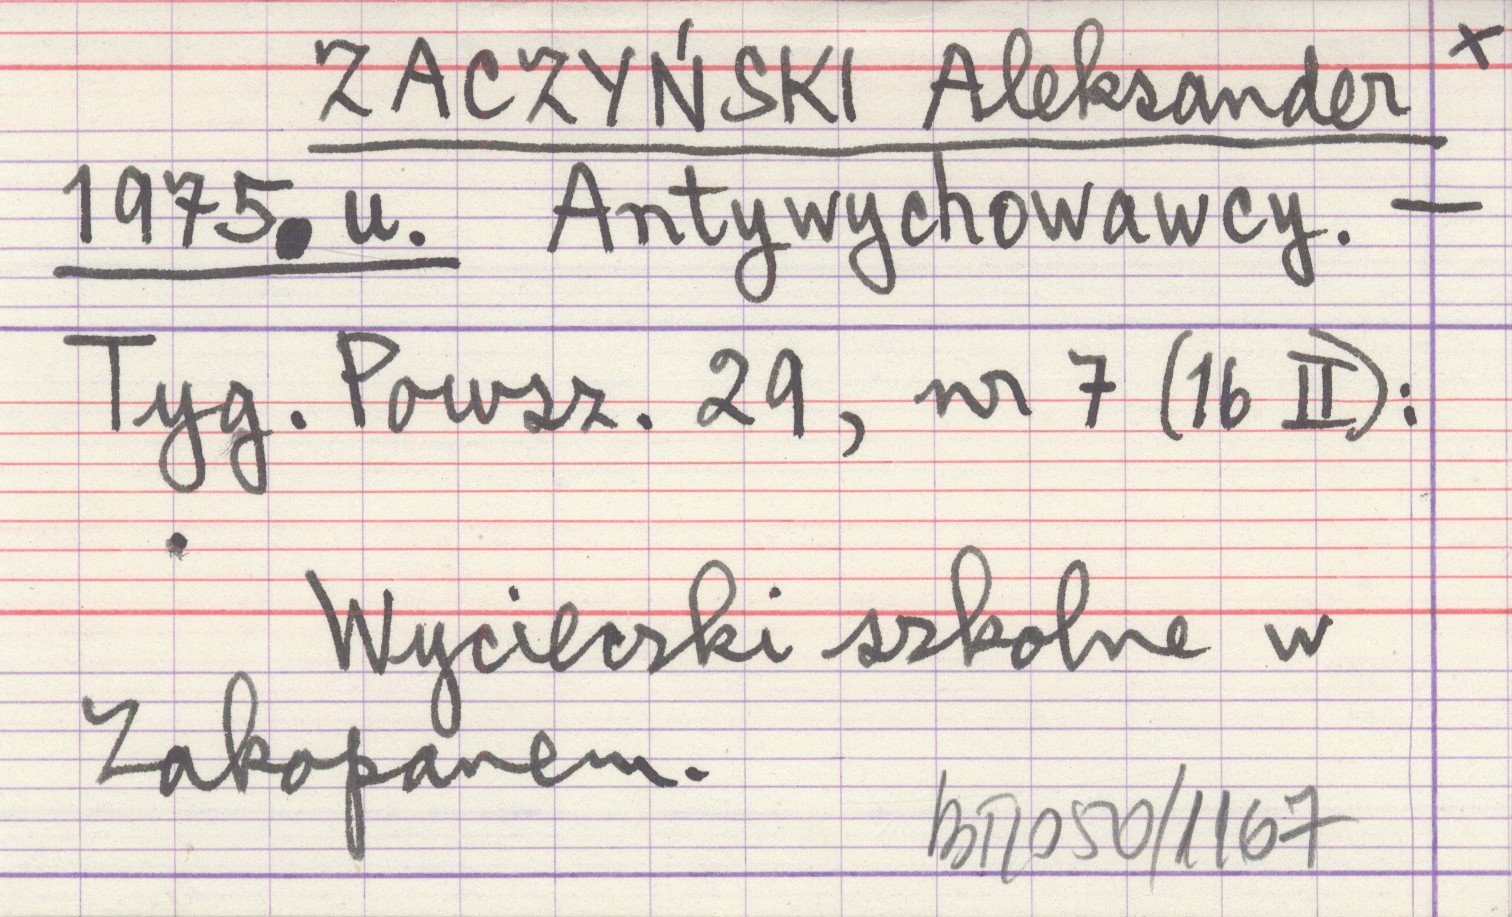 ZACZYŃSKI Aleksander x
1975. u. Antywychowawcy. —
Tyg. Powsz. 29, nr 7 (16 II):
Wycieczki szkolne w
Zakopanem.
050/1167